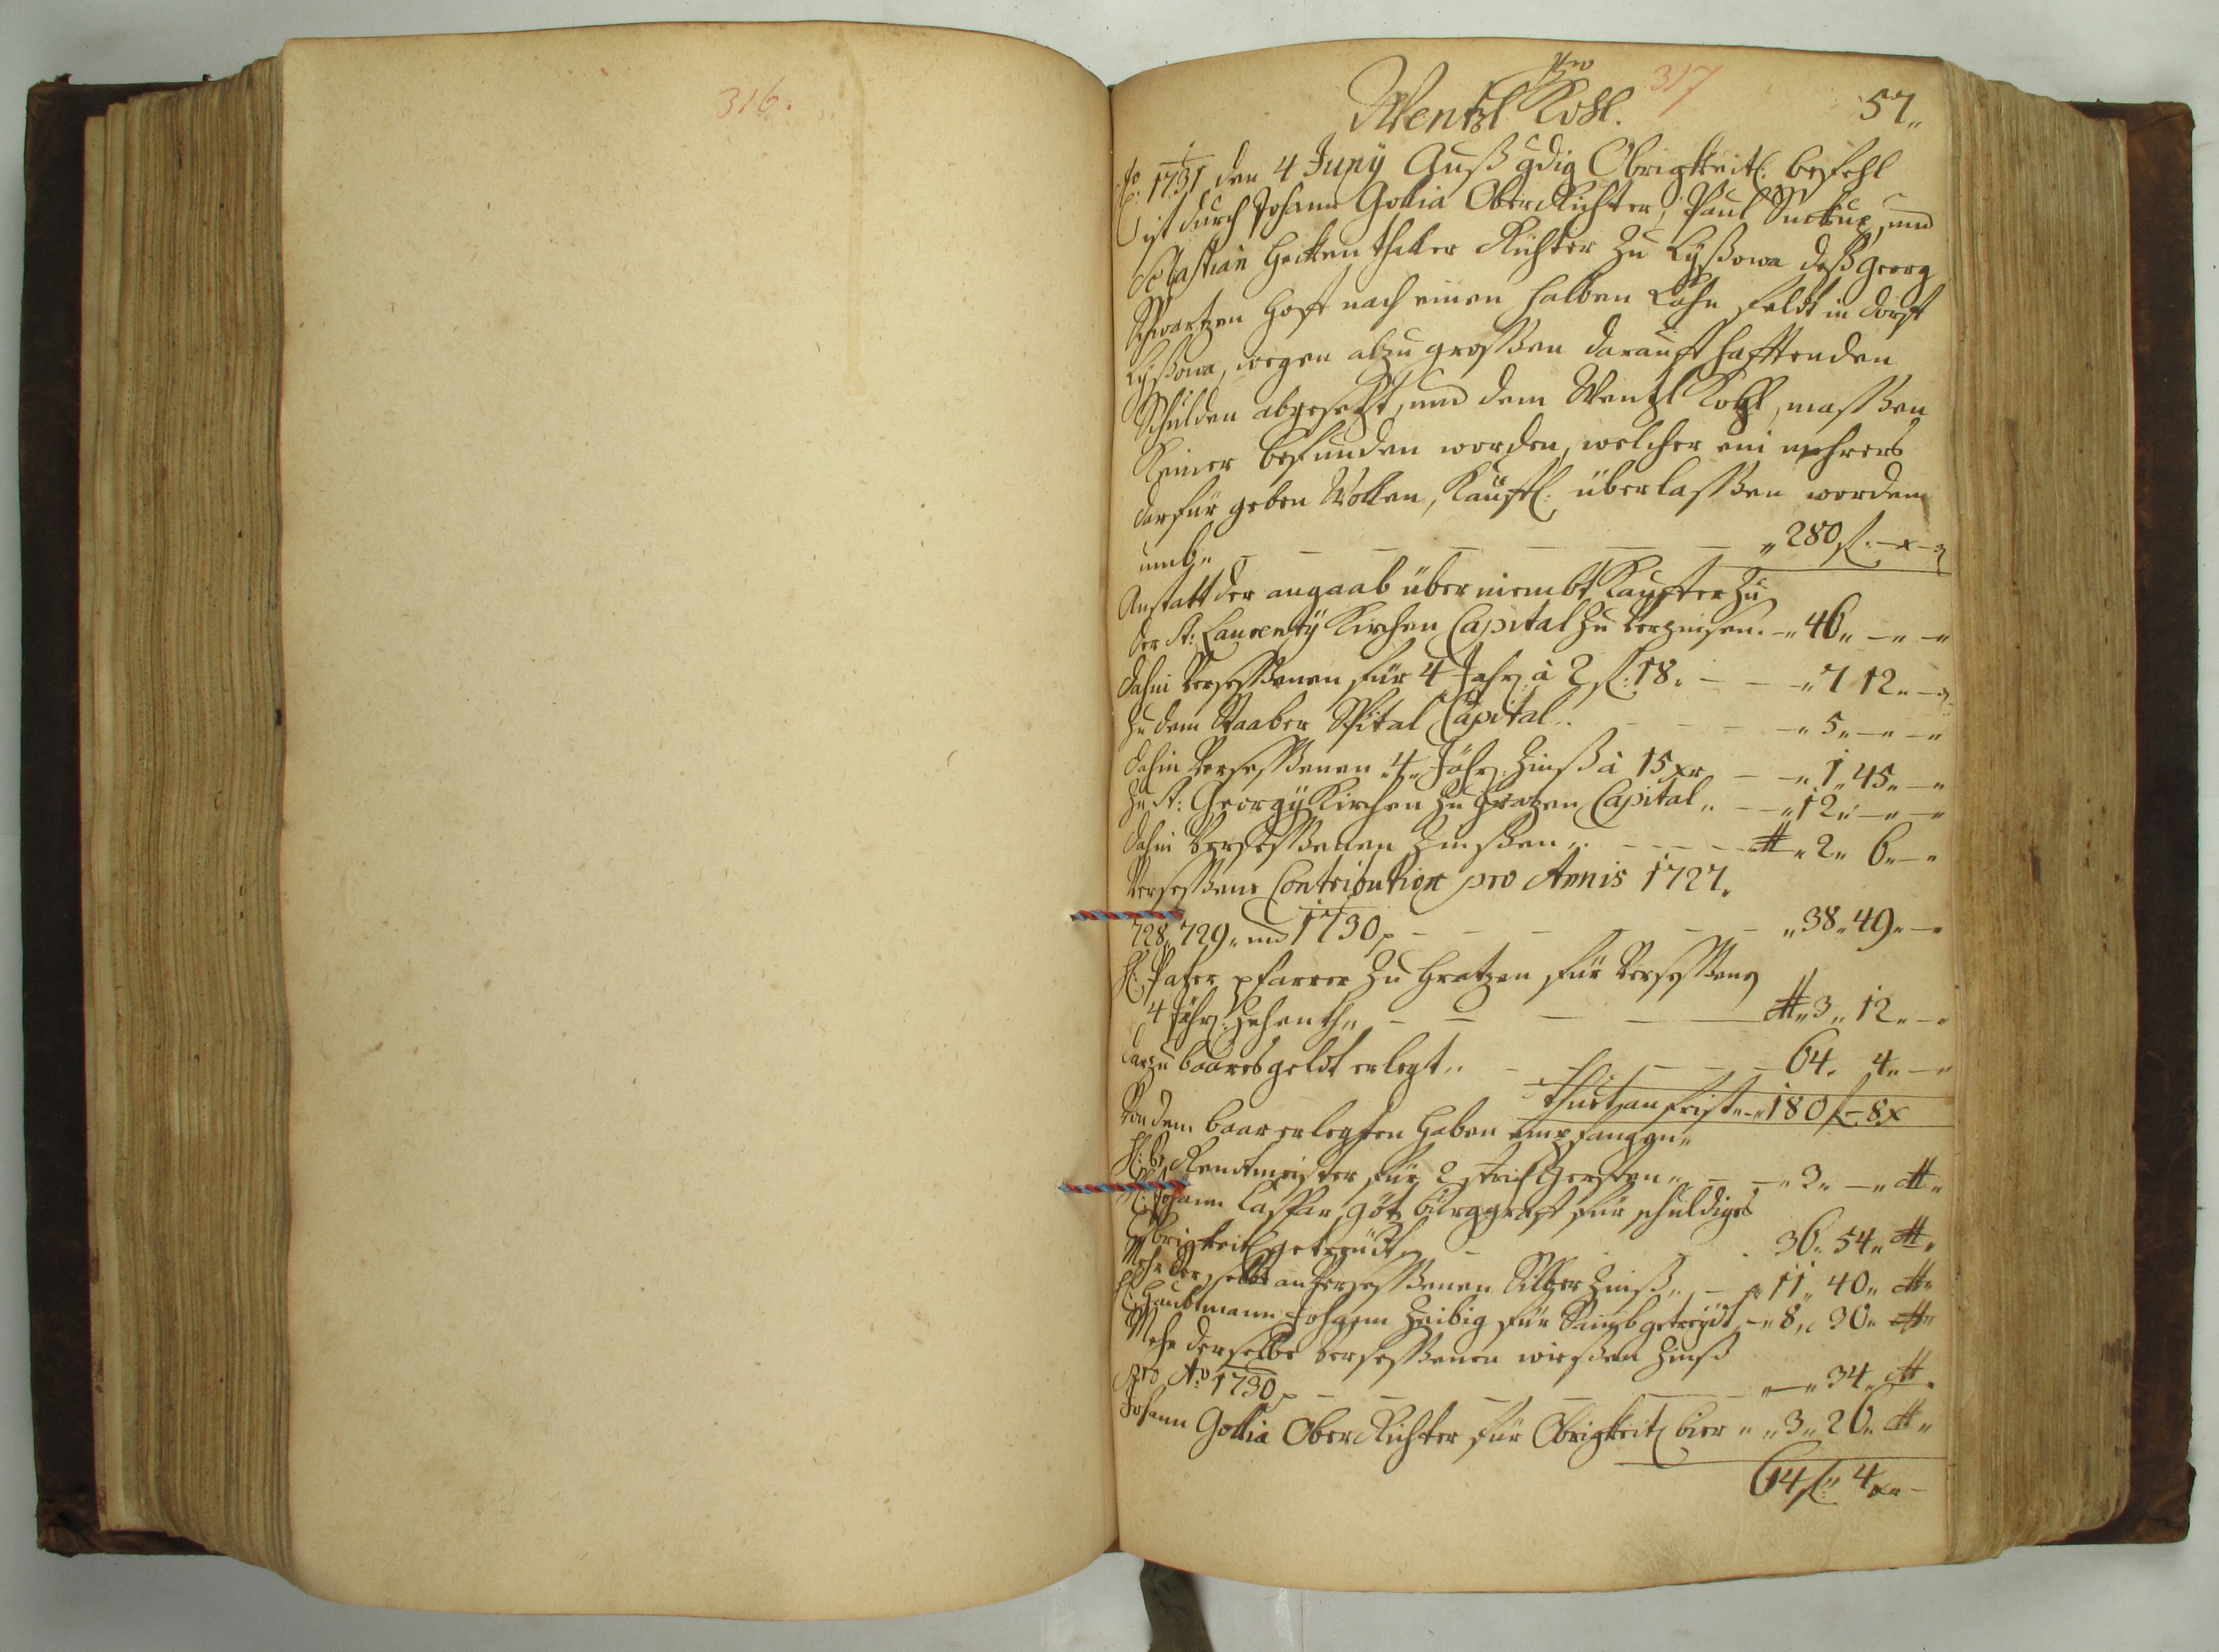 316.
317
57„
Wentzl Kohl.
Ao: 1731 den 4 Juny Auß gdig Obrigkeitl: befehl
ist durch Johann Gollia OberRichter, Paul Suckup, und
Sebastian Hecken thaller Richter zu Lyßowa deß Georg
Schwartzen Hoff nach einen halben Lahn feldt in dorff
Lyßowa, wegen alzu grossen darauff hafftenden
Schulden abgesetzt, und dem Wentzl Kohl, massen
Keiner befunden worden, welcher ein mehrers
darfür geben Wollen, Kauffl: überlassen worden
umb„ — — — — — — „280 fl.—x—₰
Anstatt der angaab übernimbt Kauffer zu
der St: Laurenty Kirchen Capital zu verzinsen. —„46„ —„ —„
dahin versessenen für 4 Jahr à 2 fl: 18. — — —„7 12„—₰
zu dem Staaber Spital Capital„ — — — —„5„—„—„
dahin versessenen „4„ Jähr: Zinß à 15xr — —„1„45„—„
zu St: Georgy Kirchen zu Gratzen Capital„ — —„12„—„—„
dahin versessenen Zinßen„ — — — — „2„ 6„—„
versessene Contribution pro Annis 1727.
728„ 729„ und 1730 — — — — — „38„49„—„
H: Pater pfarrer zu Gratzen für versessene
4 Jähr: Zehenth„ — — — — „3„ 12„—„
darzu baares geldt erlegt„ — — — — 64. 4„—„
thuet an frist„—„180 fl—8x
Von dem baar erlegten haben empfangen„
H: Rendtmeister für 2 strich Gersten„ — —„3„ —„
H: Johann Caspar Götz burggraff für schuldiges
Obrigkeitl getreydt — 36„ 54„
Mehr derselbe an versessenen Silber Zinß„ — „11„ 40„
H: Haubtmann Johann Zeibig für Saamb getreydt —„8„ 30„
Mehr derselbe versessenen Zinß
pro Ao: 1730 — — — — — „—„34„
Johann Gollia OberRichter für Obrigkeitl bier „ „3„ 26„
64 fl„ 4 xr—